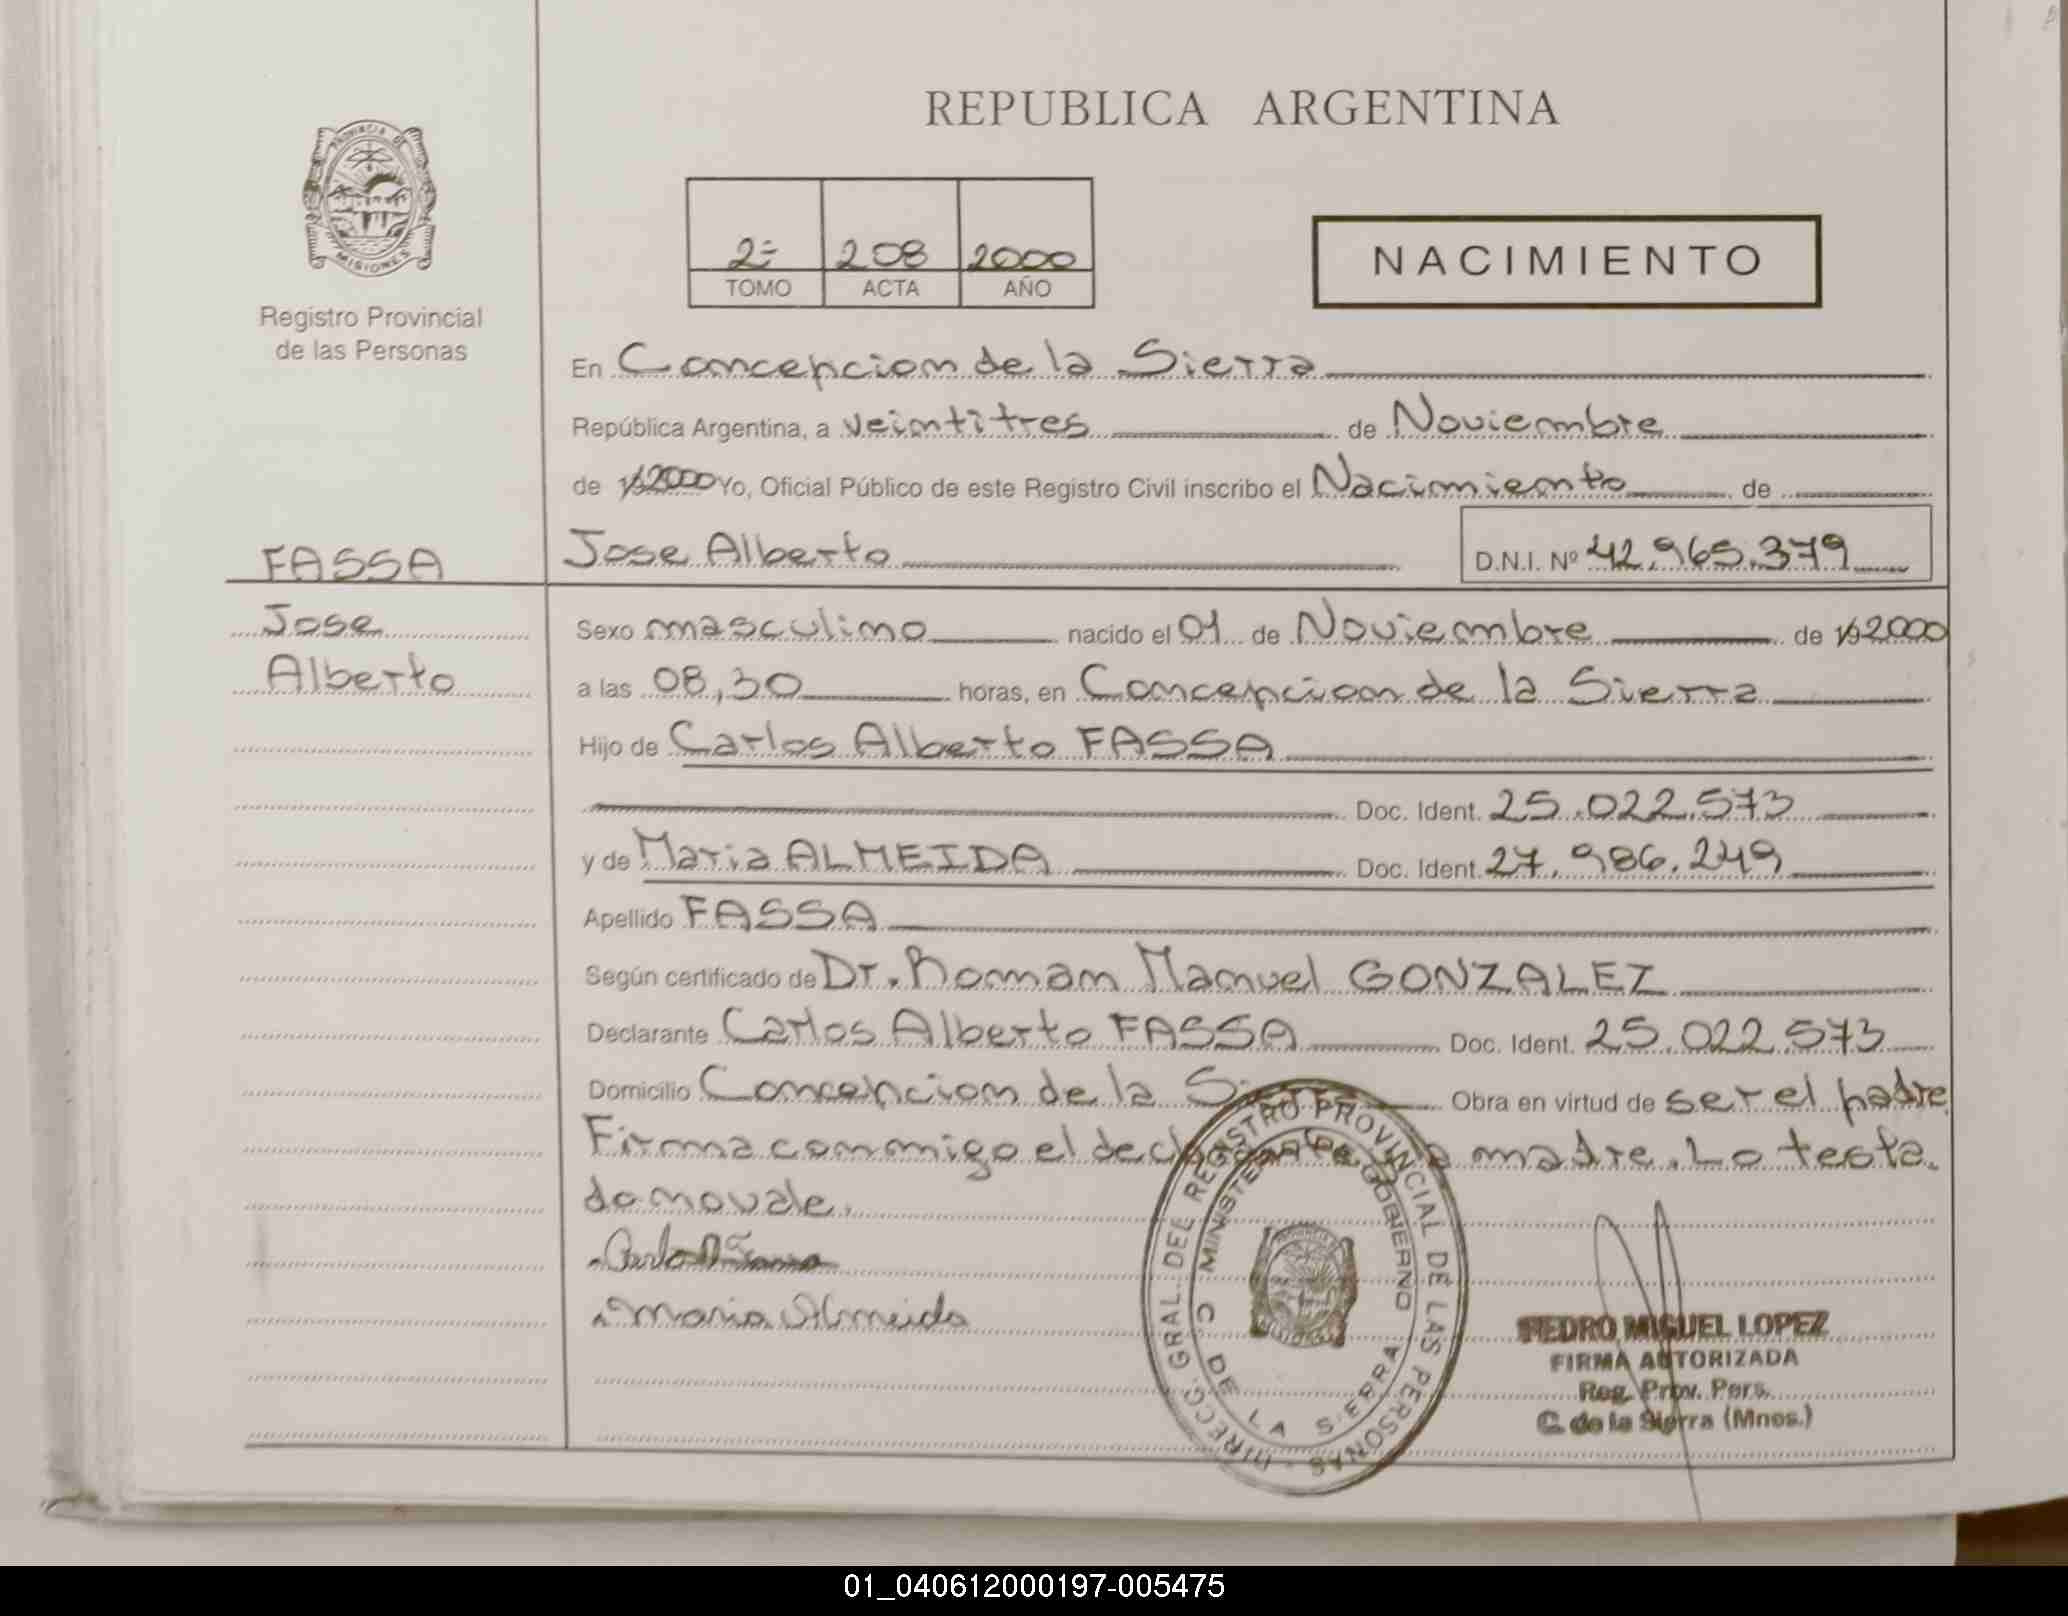 REPUBLICA ARGENTINA
PROVINCIA DE
MISIONES
Registro Provincial
de las Personas
2º 208 2000
TOMO ACTA AÑO
NACIMIENTO
En Concepcion de la Sierra
República Argentina, a veintitres de Noviembre
de 2000 Yo, Oficial Público de este Registro Civil inscribo el Nacimiento de
FASSA
Jose Alberto D.N.I. Nº 42.965.379
Jose
Alberto
Sexo masculino nacido el 01 de Noviembre de 2000
a las 08,30 horas, en Concepcion de la Sierra
Hijo de Carlos Alberto FASSA
Doc. Ident. 25.022.573
y de Maria ALMEIDA Doc. Ident. 27.986.249
Apellido FASSA
Según certificado de Dr. Roman Manuel GONZALEZ
Declarante Carlos Alberto FASSA Doc. Ident. 25.022.573
Domicilio Concepcion de la Sierra Obra en virtud de ser el padre
Firma conmigo el declarante y la madre. Lo testa
do no vale.
Maria Almeida
DIRECC. GRAL. DEL REGISTRO PROVINCIAL DE LAS PERSONAS
MINISTERIO GOBIERNO
C DE LA SIERRA
PEDRO MIGUEL LOPEZ
FIRMA AUTORIZADA
Reg. Prov. Pers.
C. de la Sierra (Mnes.)
01_040612000197-005475